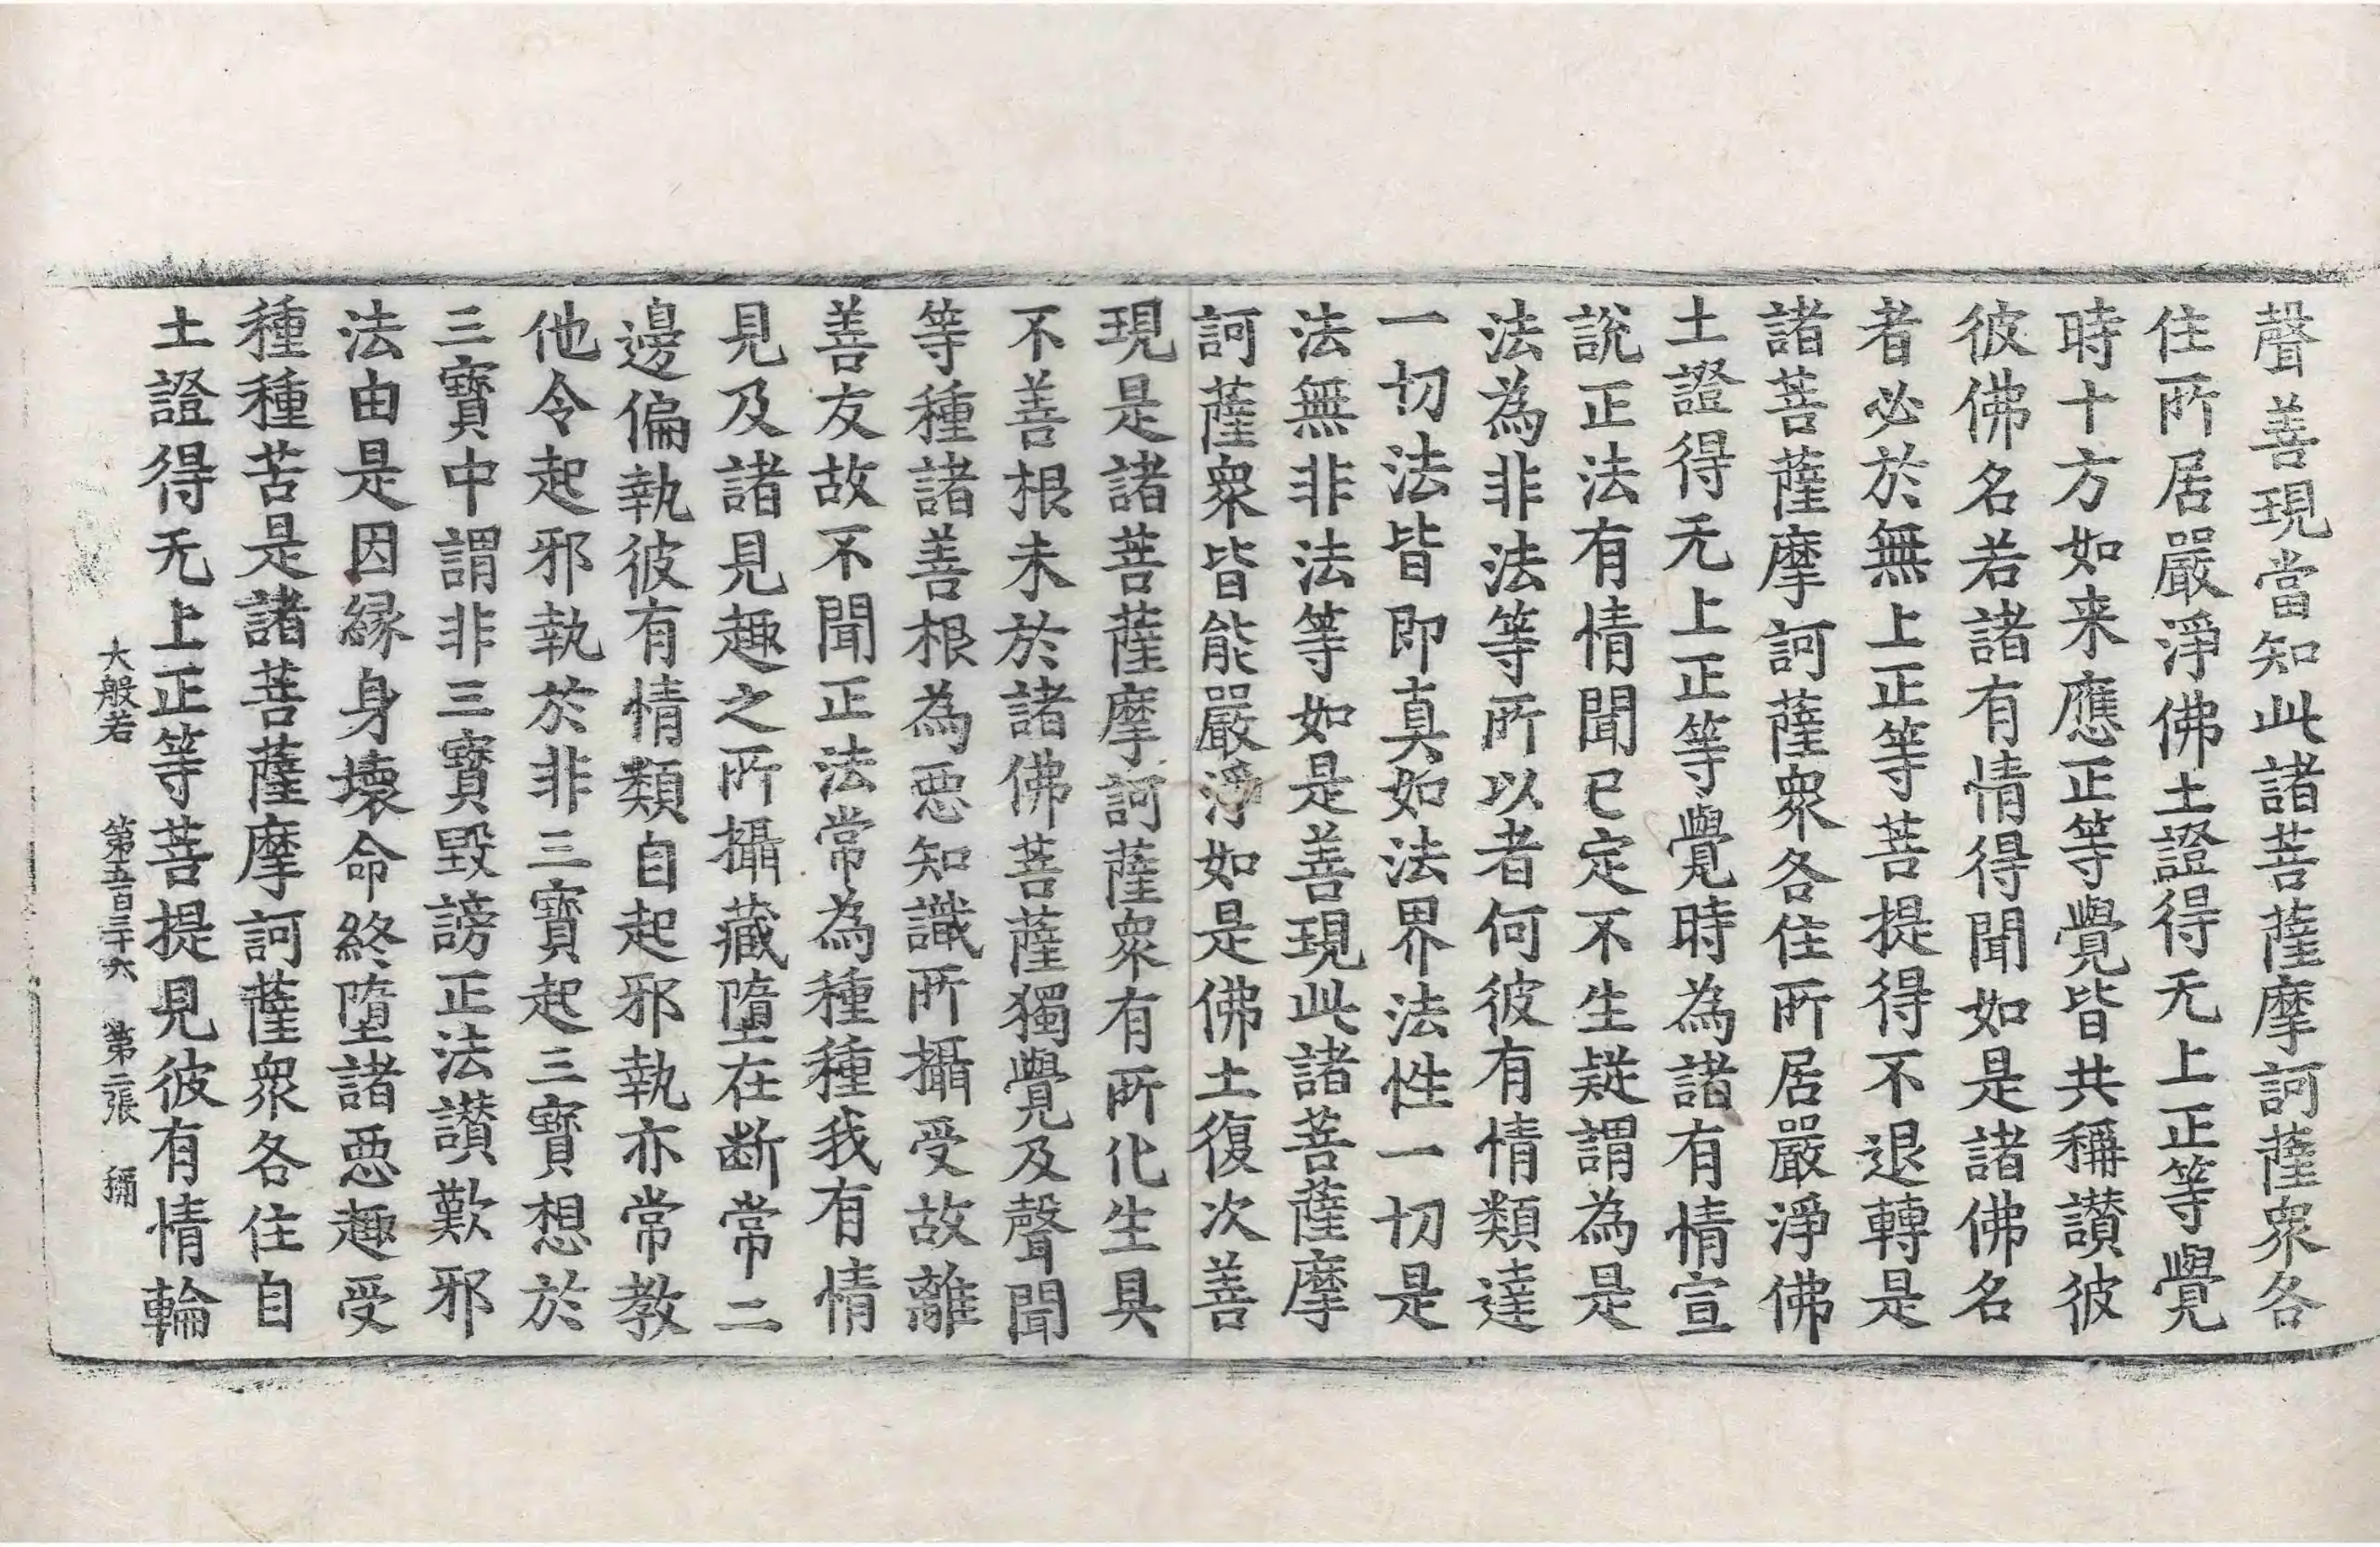 聲善現當知此諸菩薩摩訶薩衆各
住所居嚴淨佛土證得无上正等覺
時十方如来應正等覺皆共稱讃彼
彼佛名若諸有情得聞如是諸佛名
者必於無上正等菩提得不退轉是
諸菩薩摩訶薩衆各住所居嚴淨佛
土證得无上正等覺時為諸有情宣
說正法有情聞已定不生疑謂為是
法為非法等所以者何彼有情類達
一切法皆即真如法界法性一切是
法無非法等如是善現此諸菩薩摩
訶薩衆皆能嚴淨如是佛土復次善
現是諸菩薩摩訶薩衆有所化生具
不善根未於諸佛菩薩獨覺及聲聞
等種諸善根為惡知識所攝受故離
善友故不聞正法常為種種我有情
見及諸見趣之所攝藏墮在断常二
邊偏執彼有情類自起邪執亦常教
他令起邪執於非三寶起三寶想於
三寶中謂非三寶毀謗正法讃歎邪
法由是因縁身壞命終墮諸惡趣受
種種苦是諸菩薩摩訶薩衆各住自
土證得无上正等菩提見彼有情輪
大般若 第五百三十六 第二張